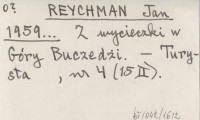 02 REYCHMAN Jan
1959... Z wycieczki w
Góry Buczedzi. — Tury-
sta , nr 4 (15 II).